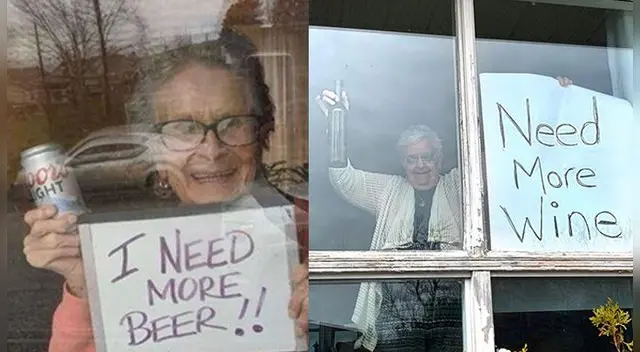 LIGHT
I NEED
MORE
BEER!!
Need
More
Wine